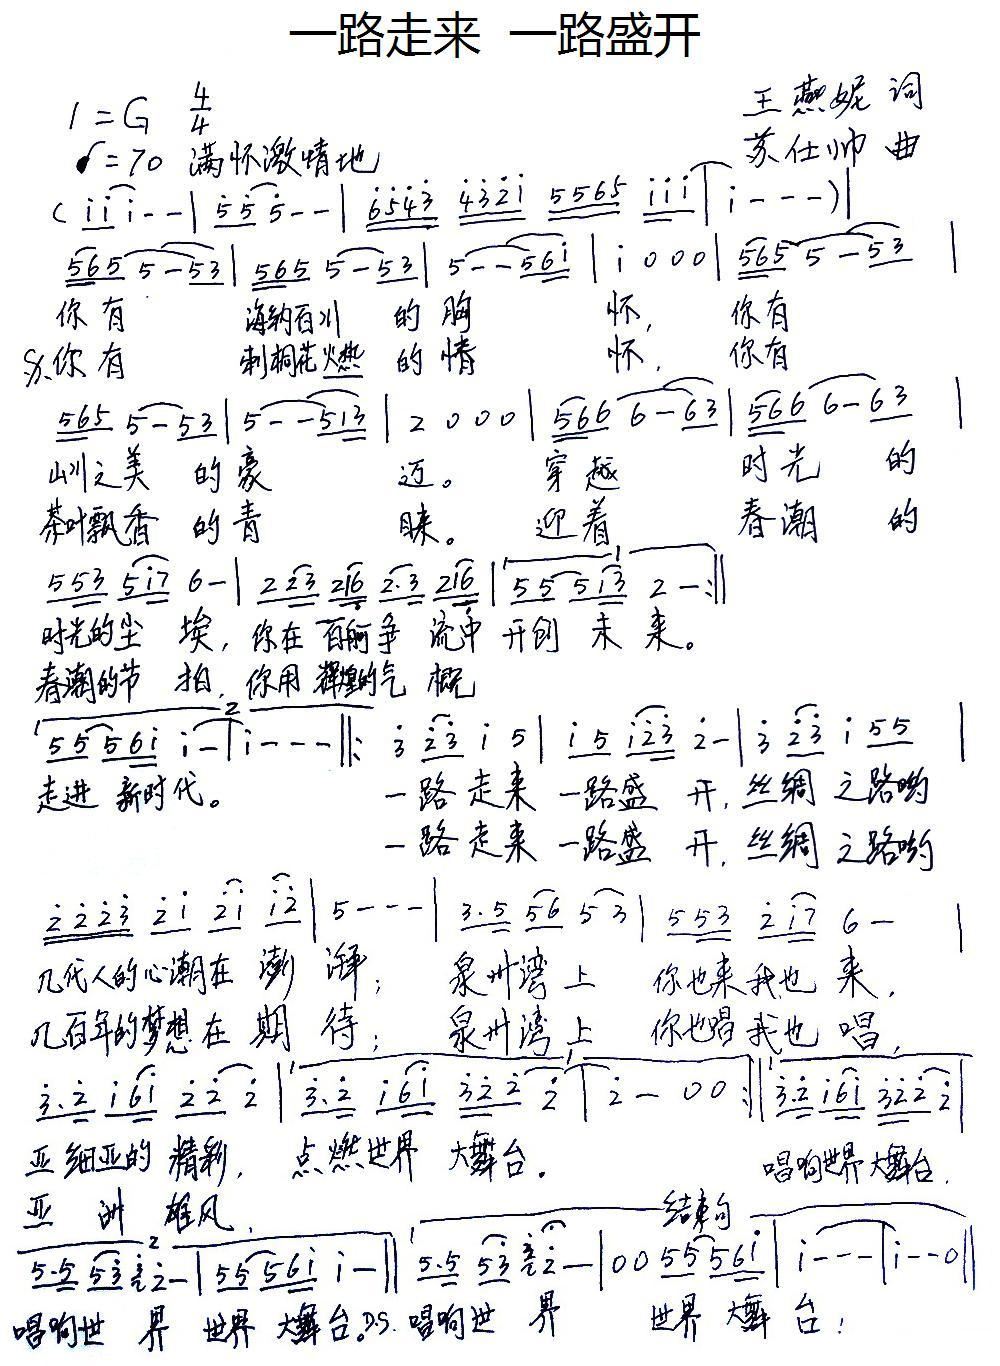 一路走来 一路盛开
1=G 4/4
王燕妮 词
♩=70 满怀激情地
苏仕帅 曲
( i i i - - | 5 5 5 - - | 6 5 4 3 4 3 2 i 5 5 6 5 i i i | i - - - ) |
5 6 5 5 - 5 3 | 5 6 5 5 - 5 3 | 5 - - 5 6 i | i 0 0 0 | 5 6 5 5 - 5 3 |
你有 海纳百川 的胸 怀, 你有
𝄋 你有 刺桐花燃 的情 怀, 你有
5 6 5 5 - 5 3 | 5 - - 5 1 3 | 2 0 0 0 | 5 6 6 6 - 6 3 | 5 6 6 6 - 6 3 |
山川之美 的豪 迈。 穿越 时光 的
茶叶飘香 的青 睐。 迎着 春潮 的
5 5 3 5 i 7 6 - | 2 2 3 2 1 6 2 . 3 2 1 6 | 1 5 5 5 1 3 2 - :||
时光的尘 埃, 你在百舸争 流中 开创 未 来。
春潮的节 拍, 你用辉煌的气 概
2 5 5 5 6 i i - | i - - - ||: 3 2 3 i 5 | i 5 i 2 3 2 - | 3 2 3 i 5 5 |
走进 新时代。 一路走来 一路盛 开, 丝绸 之路哟
一路走来 一路盛 开, 丝绸 之路哟
2 2 2 3 2 i 2 i i 2 | 5 - - - | 3 . 5 5 6 5 3 | 5 5 3 2 i 7 6 - |
几代人的心潮在 澎 湃; 泉州湾上 你也来我也 来,
几百年的梦想在 期 待; 泉州湾上 你也唱我也 唱,
3 . 2 i 6 i 2 2 2 | 1 3 . 2 i 6 i 3 2 2 2 | 2 - 0 0 :|| 3 . 2 i 6 i 3 2 2 2 |
亚细亚的 精彩, 点燃世界 大舞台。 唱响世界大舞台,
亚 洲 雄风,
结束句
2 5 . 5 5 3 2 - | 5 5 5 6 i i - || 5 . 5 5 3 2 - | 0 0 5 5 5 6 i | i - - - | i - - 0 ||
唱响世 界 世界 大舞台。D.S. 唱响世 界 世界 大舞 台!